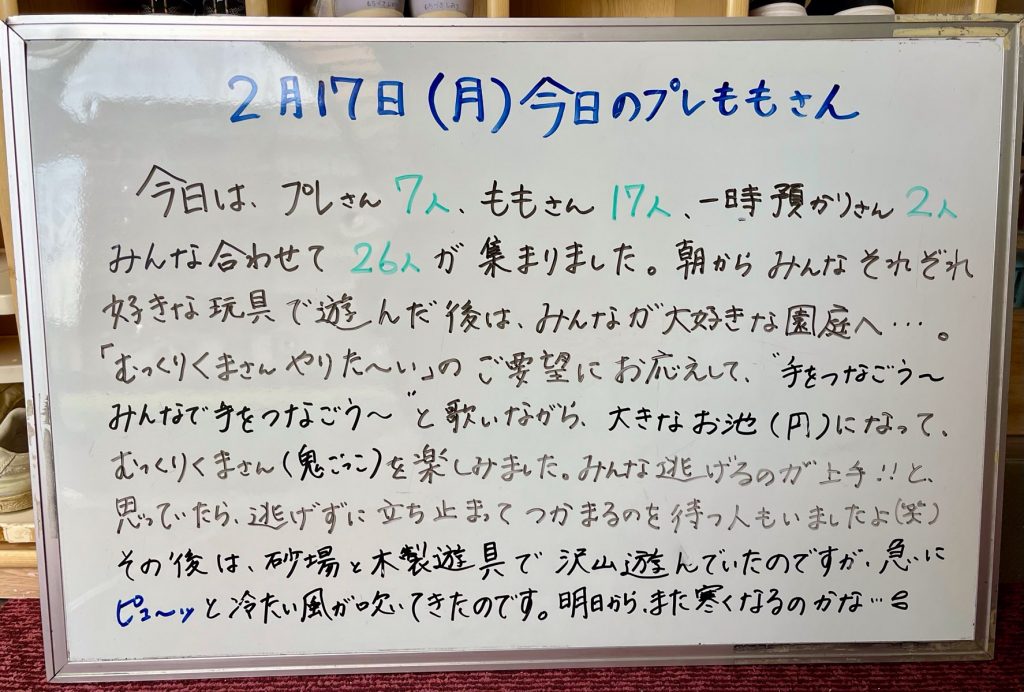 2月17日(月)今日のプレももさん
今日は、プレさん 7人、ももさん 17人、一時預かりさん 2人
みんな合わせて 26人が 集まりました。朝から みんな それぞれ
好きな玩具で遊んだ後は、みんなが大好きな園庭へ…。
「むっくりくまさん やりた〜い」の ご要望に お応えして、“手をつなごう〜
みんなで手をつなごう〜”と歌いながら、大きなお池(円)になって、
むっくりくまさん(鬼ごっこ)を楽しみました。みんな逃げるのが上手!!と、
思っていたら、逃げずに立ち止まってつかまるのを待つ人もいましたよ(笑)
その後は、砂場と木製遊具で沢山遊んでいたのですが、急に
ピューッと冷たい風が吹いてきたのです。明日から、また寒くなるのかな…